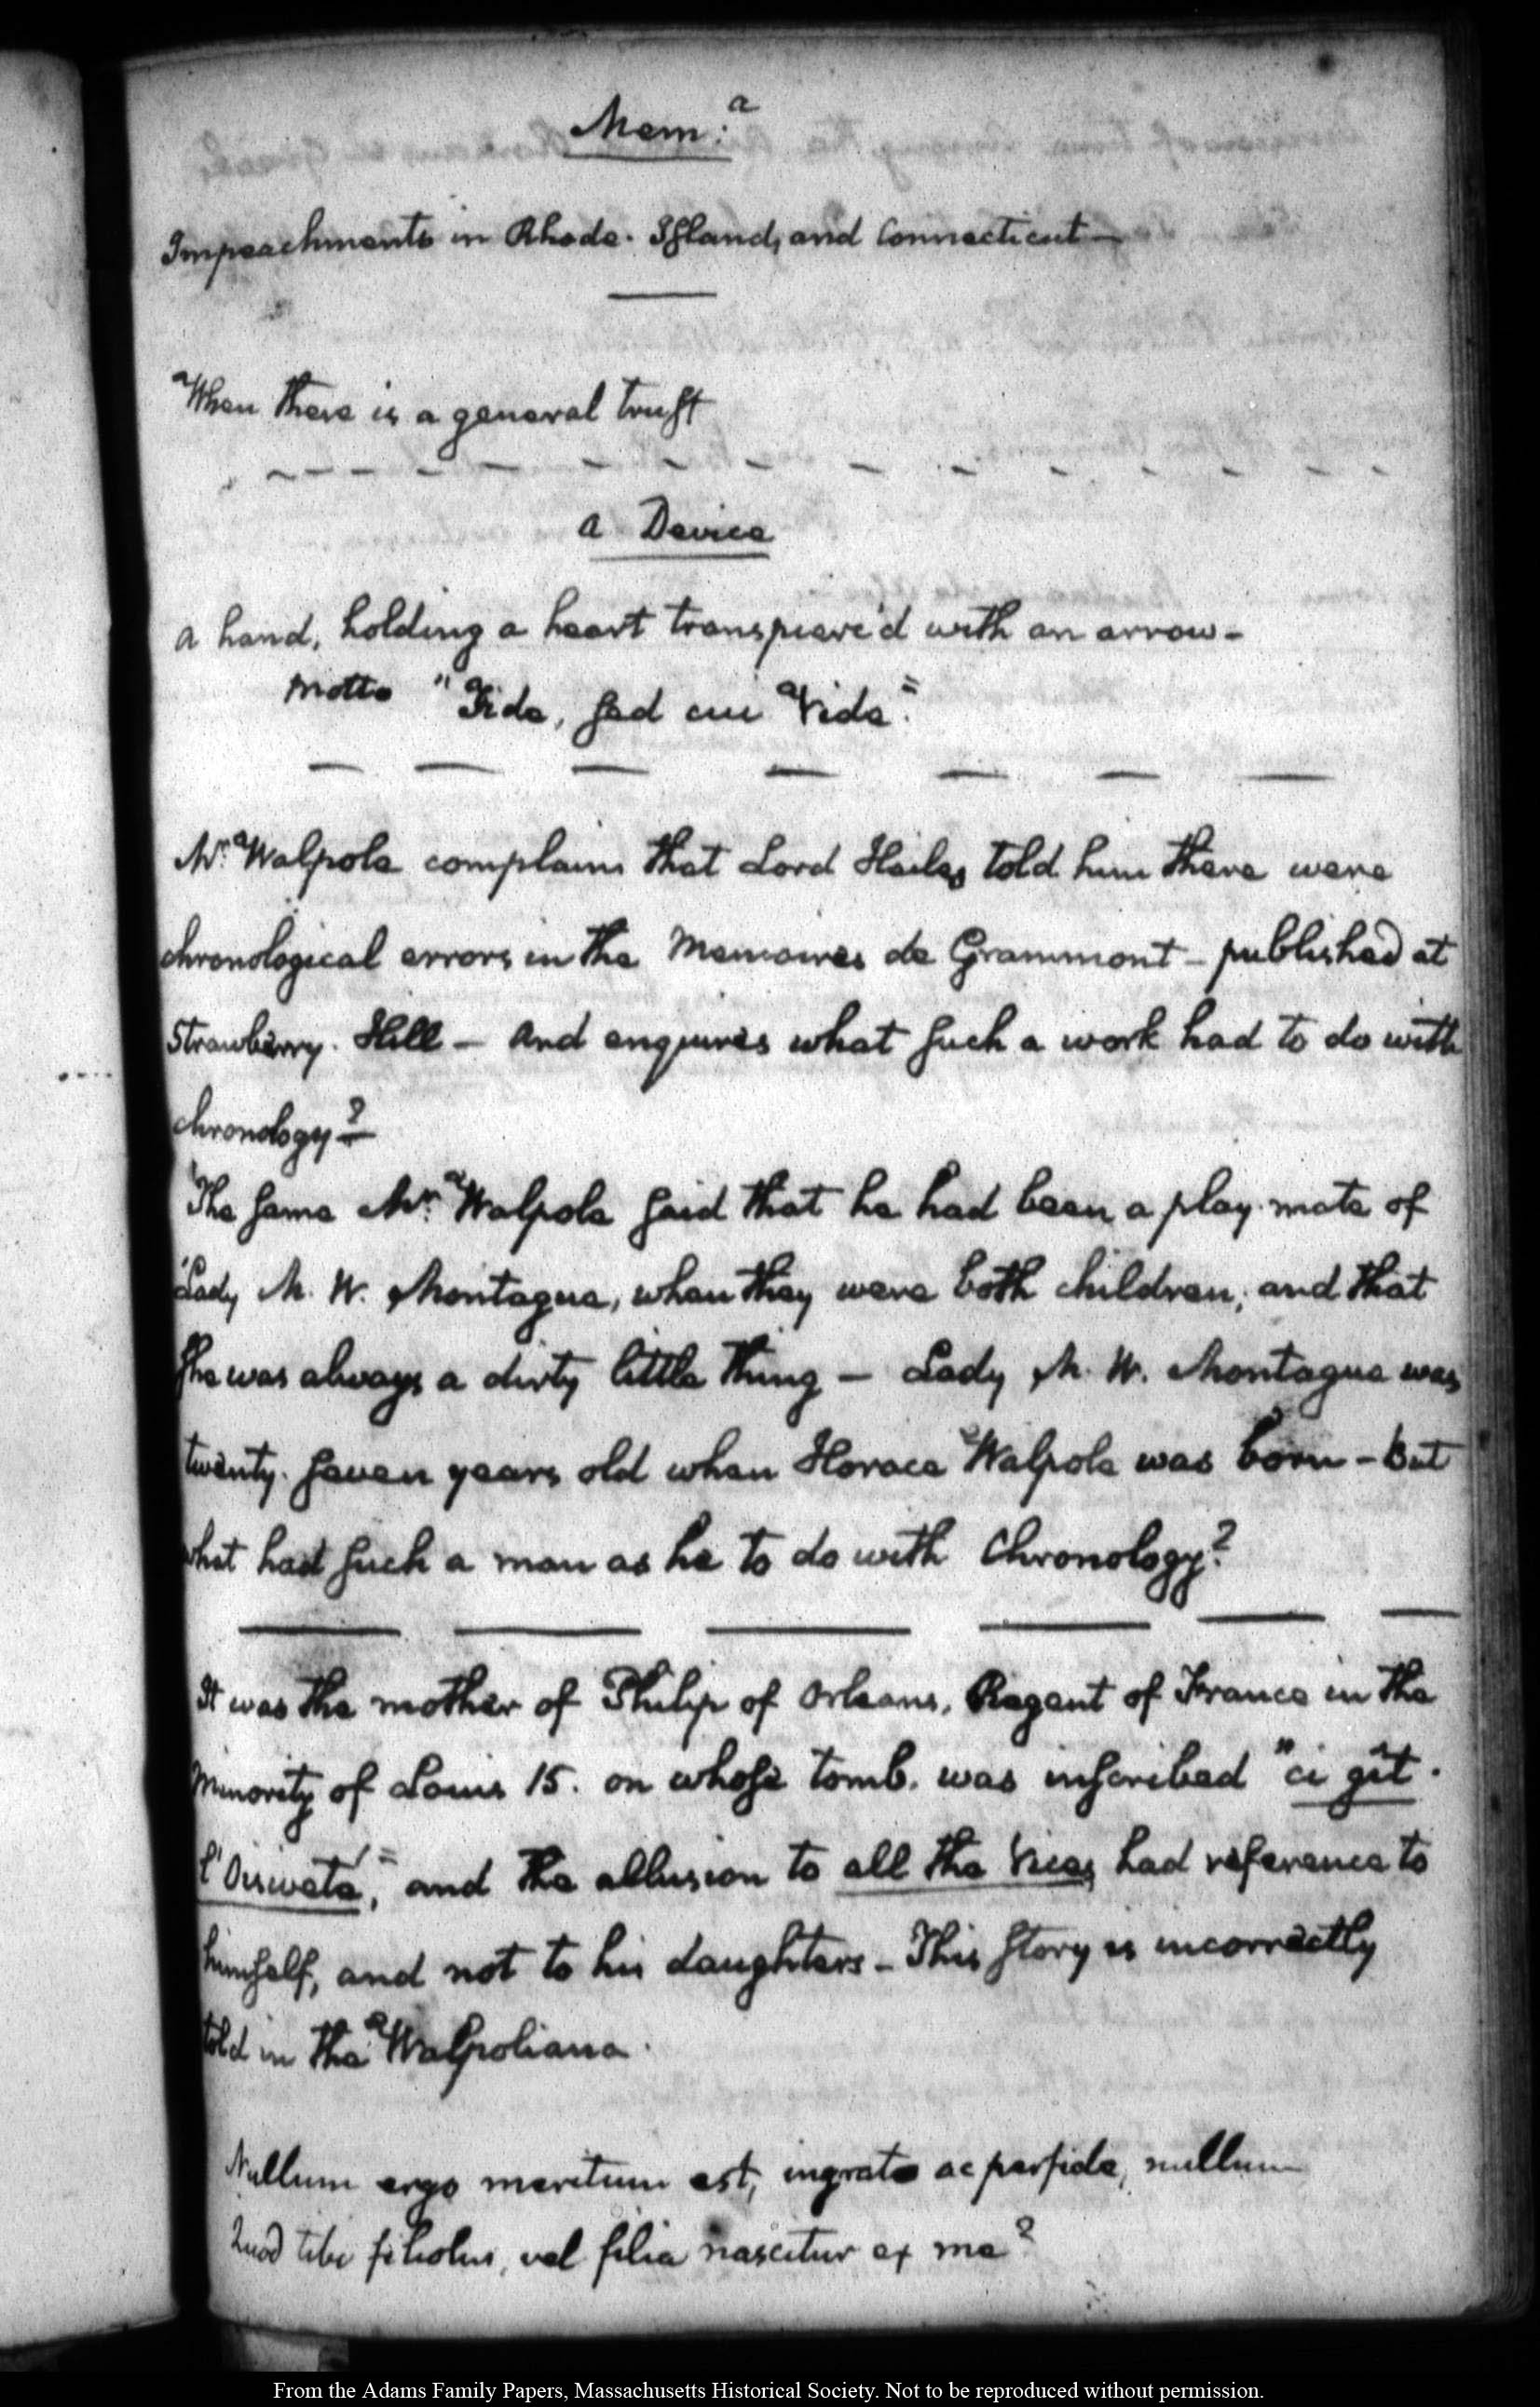 Mem:a
Impeachments in Rhode-Island, and Connecticut—
When there is a general trust
A Device
A hand, holding a heart transpierc'd with an arrow—
Motto "Fide, sed cui Vide."
Mr. Walpole complains that Lord Hailes told him there were
chronological errors in the Memoires de Grammont — published at
Strawberry-Hill — And enquires what such a work had to do with
chronology?—
The same Mr. Walpole said that he had been a play-mate of
Lady M. W. Montague, when they were both children; and that
she was always a dirty little thing — Lady M. W. Montague was
twenty-seven years old when Horace Walpole was born — But
what had such a man as he to do with Chronology?
It was the mother of Philip of Orleans, Regent of France in the
Minority of Louis 15. on whose tomb, was inscribed "ci gît-
l'Oisiveté," and the allusion to all the Vices had reference to
himself, and not to his daughters — This story is incorrectly
told in the Walpoliana.
Nullum ergo meritum est, ingrate ac perfide, nullum
Quod tibi filiolus, vel filia nascitur ex me?
From the Adams Family Papers, Massachusetts Historical Society. Not to be reproduced without permission.